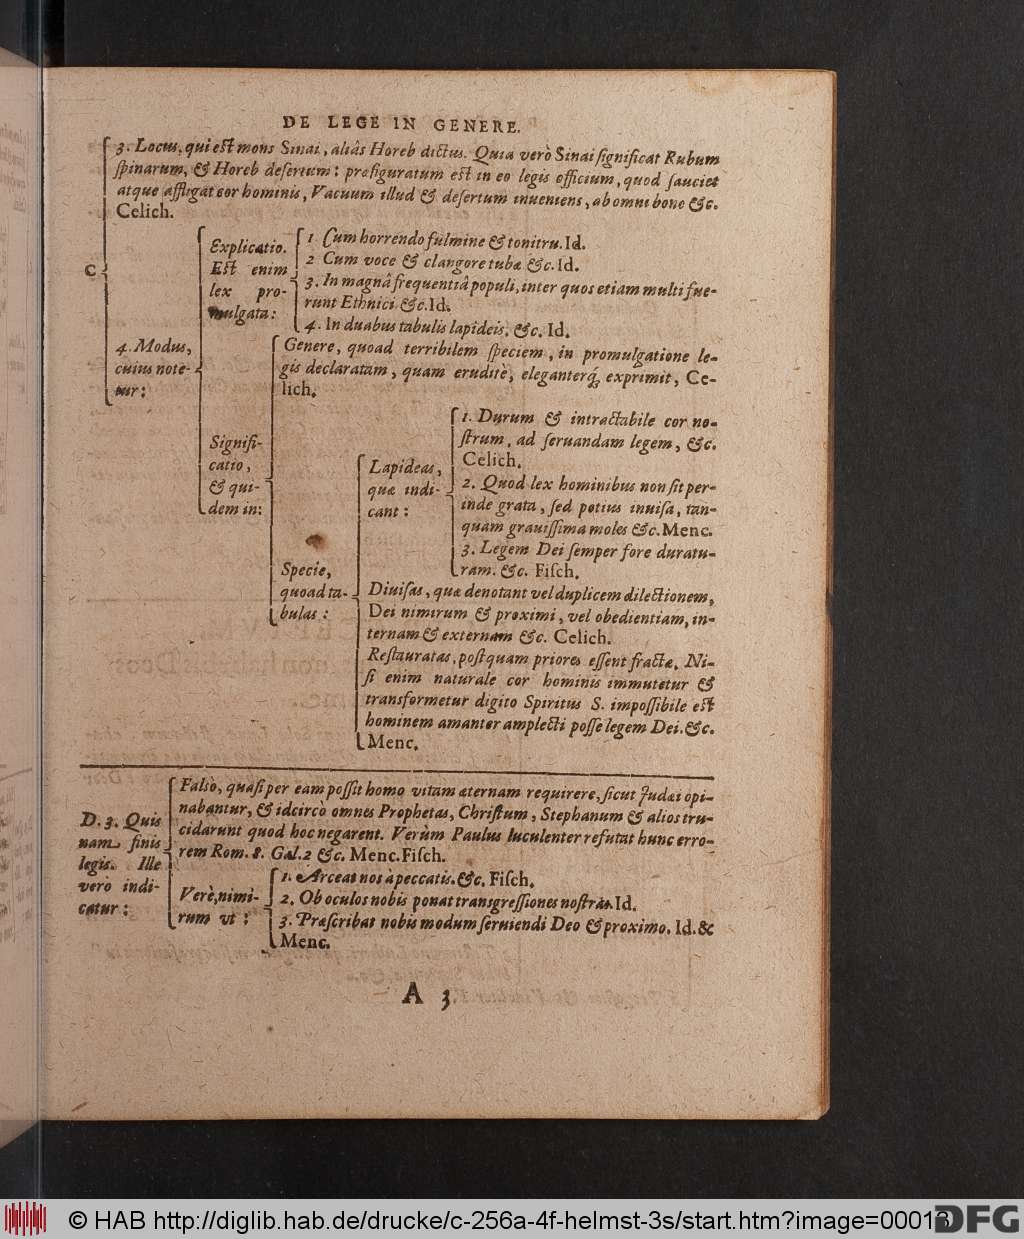 DE LEGE IN GENERE.
3. Locus, qui est mons Sinai, aliàs Horeb dictus. Quia verò Sinai significat Rubum
spinarum, & Horeb desertum: præfiguratum est in eo legis officium, quod sauciet
atque affligat cor hominis, Vacuum illud & desertum inueniens, ab omni bono &c.
Celich.
C
4. Modus,
cuius note-
tur:
Explicatio.
Est enim
lex pro-
mulgata:
1 Cum horrendo fulmine & tonitru. Id.
2 Cum voce & clangore tubæ &c. Id.
3. In magnâ frequentiâ populi, inter quos etiam multi fue-
runt Ethnici &c. Id.
4. In duabus tabulis lapideis, &c. Id.
Signifi-
catio,
& qui-
dem in:
Genere, quoad terribilem speciem, in promulgatione le-
gis declaratam, quam eruditè, eleganterq́; exprimit, Ce-
lich.
Specie,
quoad ta-
bulas:
Lapideas,
quæ indi-
cant:
1. Durum & intractabile cor no-
strum, ad seruandam legem, &c.
Celich.
2. Quod lex hominibus non sit per-
inde grata, sed potius inuisa, tan-
quam grauissima moles &c. Menc.
3. Legem Dei semper fore duratu-
ram. &c. Fisch.
Diuisas, quæ denotant vel duplicem dilectionem,
Dei nimirum & proximi, vel obedientiam, in-
ternam & externam &c. Celich.
Restauratas, postquam priores essent fractæ. Ni-
si enim naturale cor hominis immutetur &
transformetur digito Spiritus S. impossibile est
hominem amanter amplecti posse legem Dei. &c.
Menc.
D. 3. Quis
nam finis
legis. Ille
vero indi-
catur:
Falsò, quasi per eam possit homo vitam æternam requirere, sicut Judæi opi-
nabantur, & idcircò omnes Prophetas, Christum, Stephanum & alios tru-
cidarunt quod hoc negarent. Verùm Paulus luculenter refutat hunc erro-
rem Rom. 8. Gal. 2 &c. Menc. Fisch.
Verè, nimi-
rum vt:
1. Arceat nos à peccatis. &c. Fisch.
2. Ob oculos nobis ponat transgressiones nostras. Id.
3. Præscribat nobis modum seruiendi Deo & proximo. Id. &
Menc.
A 3.
© HAB http://diglib.hab.de/drucke/c-256a-4f-helmst-3s/start.htm?image=00013
DFG